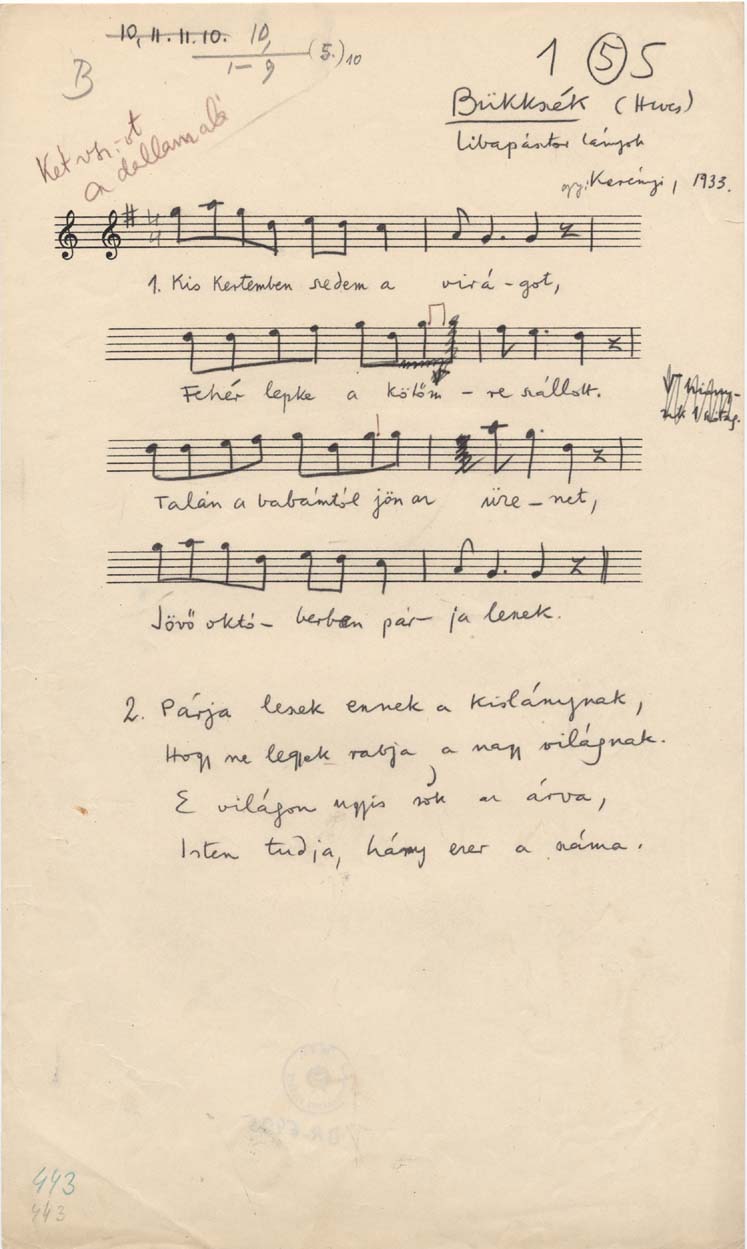 10, 11. 11. 10. 10,
1-9 (5.) 10
B
1 5 5
Két vsz.-ot
a dallam alá
Bükkszék (Heves)
Libapásztor lányok
gy. Kerényi, 1933.
4
4
1. Kis kertemben szedem a virá-got,
Fehér lepke a kötőm - re szállott.
Talán a babámtól jön az üze-net,
Jövő októ- berben pár- ja leszek.
2. Párja leszek ennek a kislánynak,
Hogy ne legyek rabja a nagy világnak.
E világon ugyis sok az árva,
Isten tudja, hány ezer a száma.
443
443